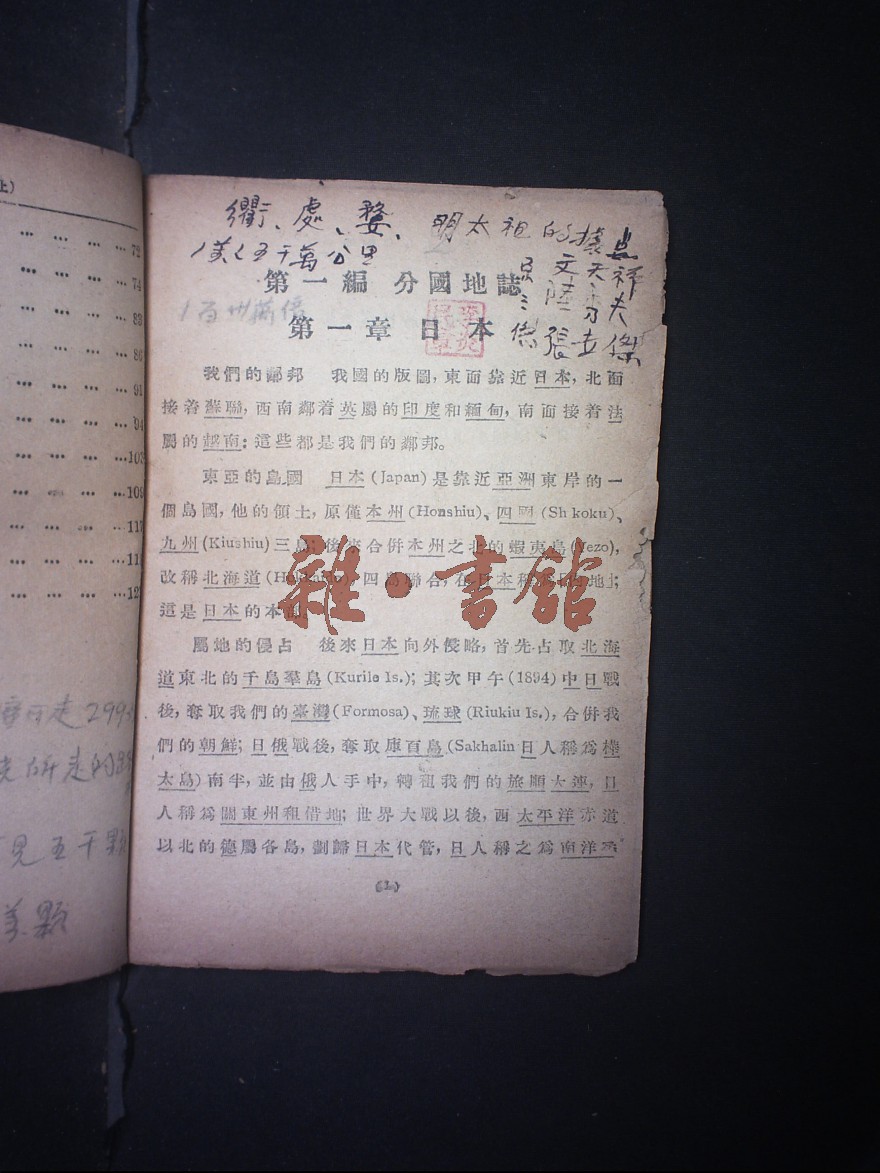 上)
... ... ... ... 72
... ... ... ... 74
... ... ... ... 83
... ... ... ... 86
... ... ... ... 91
... ... ... ... 94
... ... ... ...103
... ... ... ...109
... ... ... ...
... ... ... ...
... ... ... ...
見五千顆
顆
衢、處、婺、明太祖的據點
五千萬公里
文天祥
陸秀夫
張世傑
第一編 分國地誌
第一章 日本
我們的鄰邦 我國的版圖,東面靠近日本,北面
接着蘇聯,西南鄰着英屬的印度和緬甸,南面接着法
屬的越南:這些都是我們的鄰邦。
東亞的島國 日本(Japan)是靠近亞洲東岸的一
個島國,他的領土,原僅本州(Honshiu)、四國(Sh koku)、
九州(Kiushiu)三島;後來合併本州之北的蝦夷島(Yezo),
改稱北海道 四島聯合,在日本稱 地」;
這是日本的本部。
雜·書館
屬地的侵占 後來日本向外侵略,首先占取北海
道東北的千島羣島(Kurile Is.);其次甲午(1894)中日戰
後,奪取我們的臺灣(Formosa)、琉球(Riukiu Is.),合併我
們的朝鮮;日俄戰後,奪取庫頁島(Sakhalin日人稱爲樺
太島)南半,並由俄人手中,轉租我們的旅順大連,日
人稱爲關東州租借地;世界大戰以後,西太平洋赤道
以北的德屬各島,劃歸日本代管,日人稱之爲南洋羣
(1)